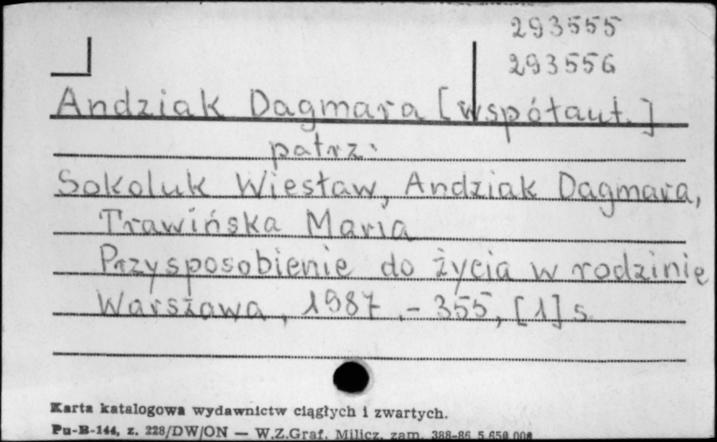 293555
293556
Andziak Dagmara [współaut.]
patrz:
Sokoluk Wiesław, Andziak Dagmara,
Trawińska Maria
Przysposobienie do życia w rodzinie
Warszawa, 1987. - 355, [1] s.
Karta katalogowa wydawnictw ciągłych i zwartych.
Pu-B-144, z. 228/DW/ON — W.Z.Graf. Milicz, zam. 388-86 5.650.000